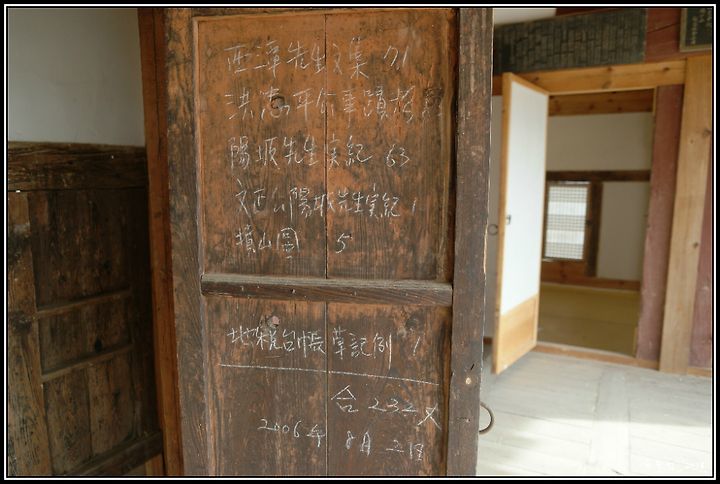 西潭先生文集 71
洪忠平公事蹟
陽坡先生実紀 63
文正公陽坡先生実紀 1
横山圖 5
地税台帳草記例 1
合 232
2006年 8月 21日